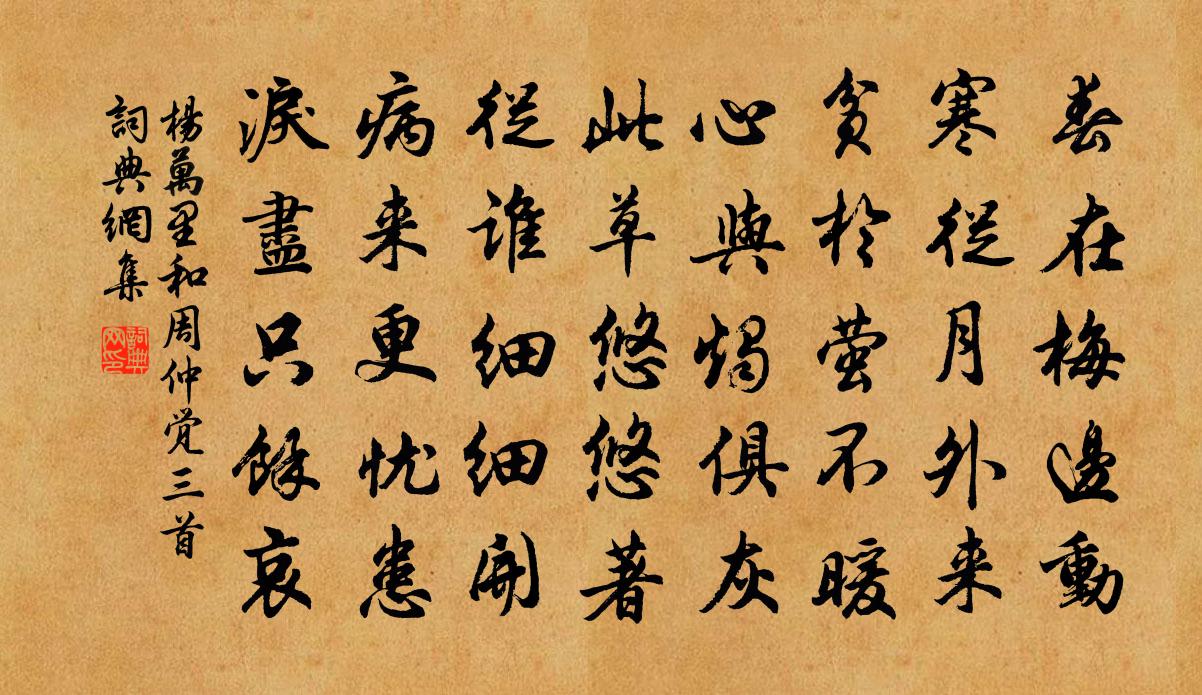 春在梅邊動
寒從月外来
貧於萤不暖
心與燭俱灰
此草悠悠著
從谁細細開
病来更忧患
淚盡只餘哀
楊萬里和周仲觉三首
詞典網集
詞典网印